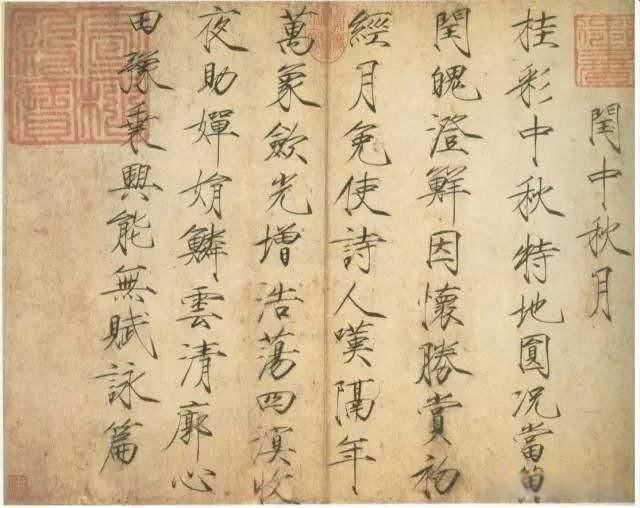 閏中秋月
桂彩中秋特地圓況當
閏魄澄鮮因懷勝賞初
經月免使詩人嘆隔年
萬象歛光增浩蕩四溟收
夜助嬋娟鱗雲清廓心
田豫乘興能無賦詠篇